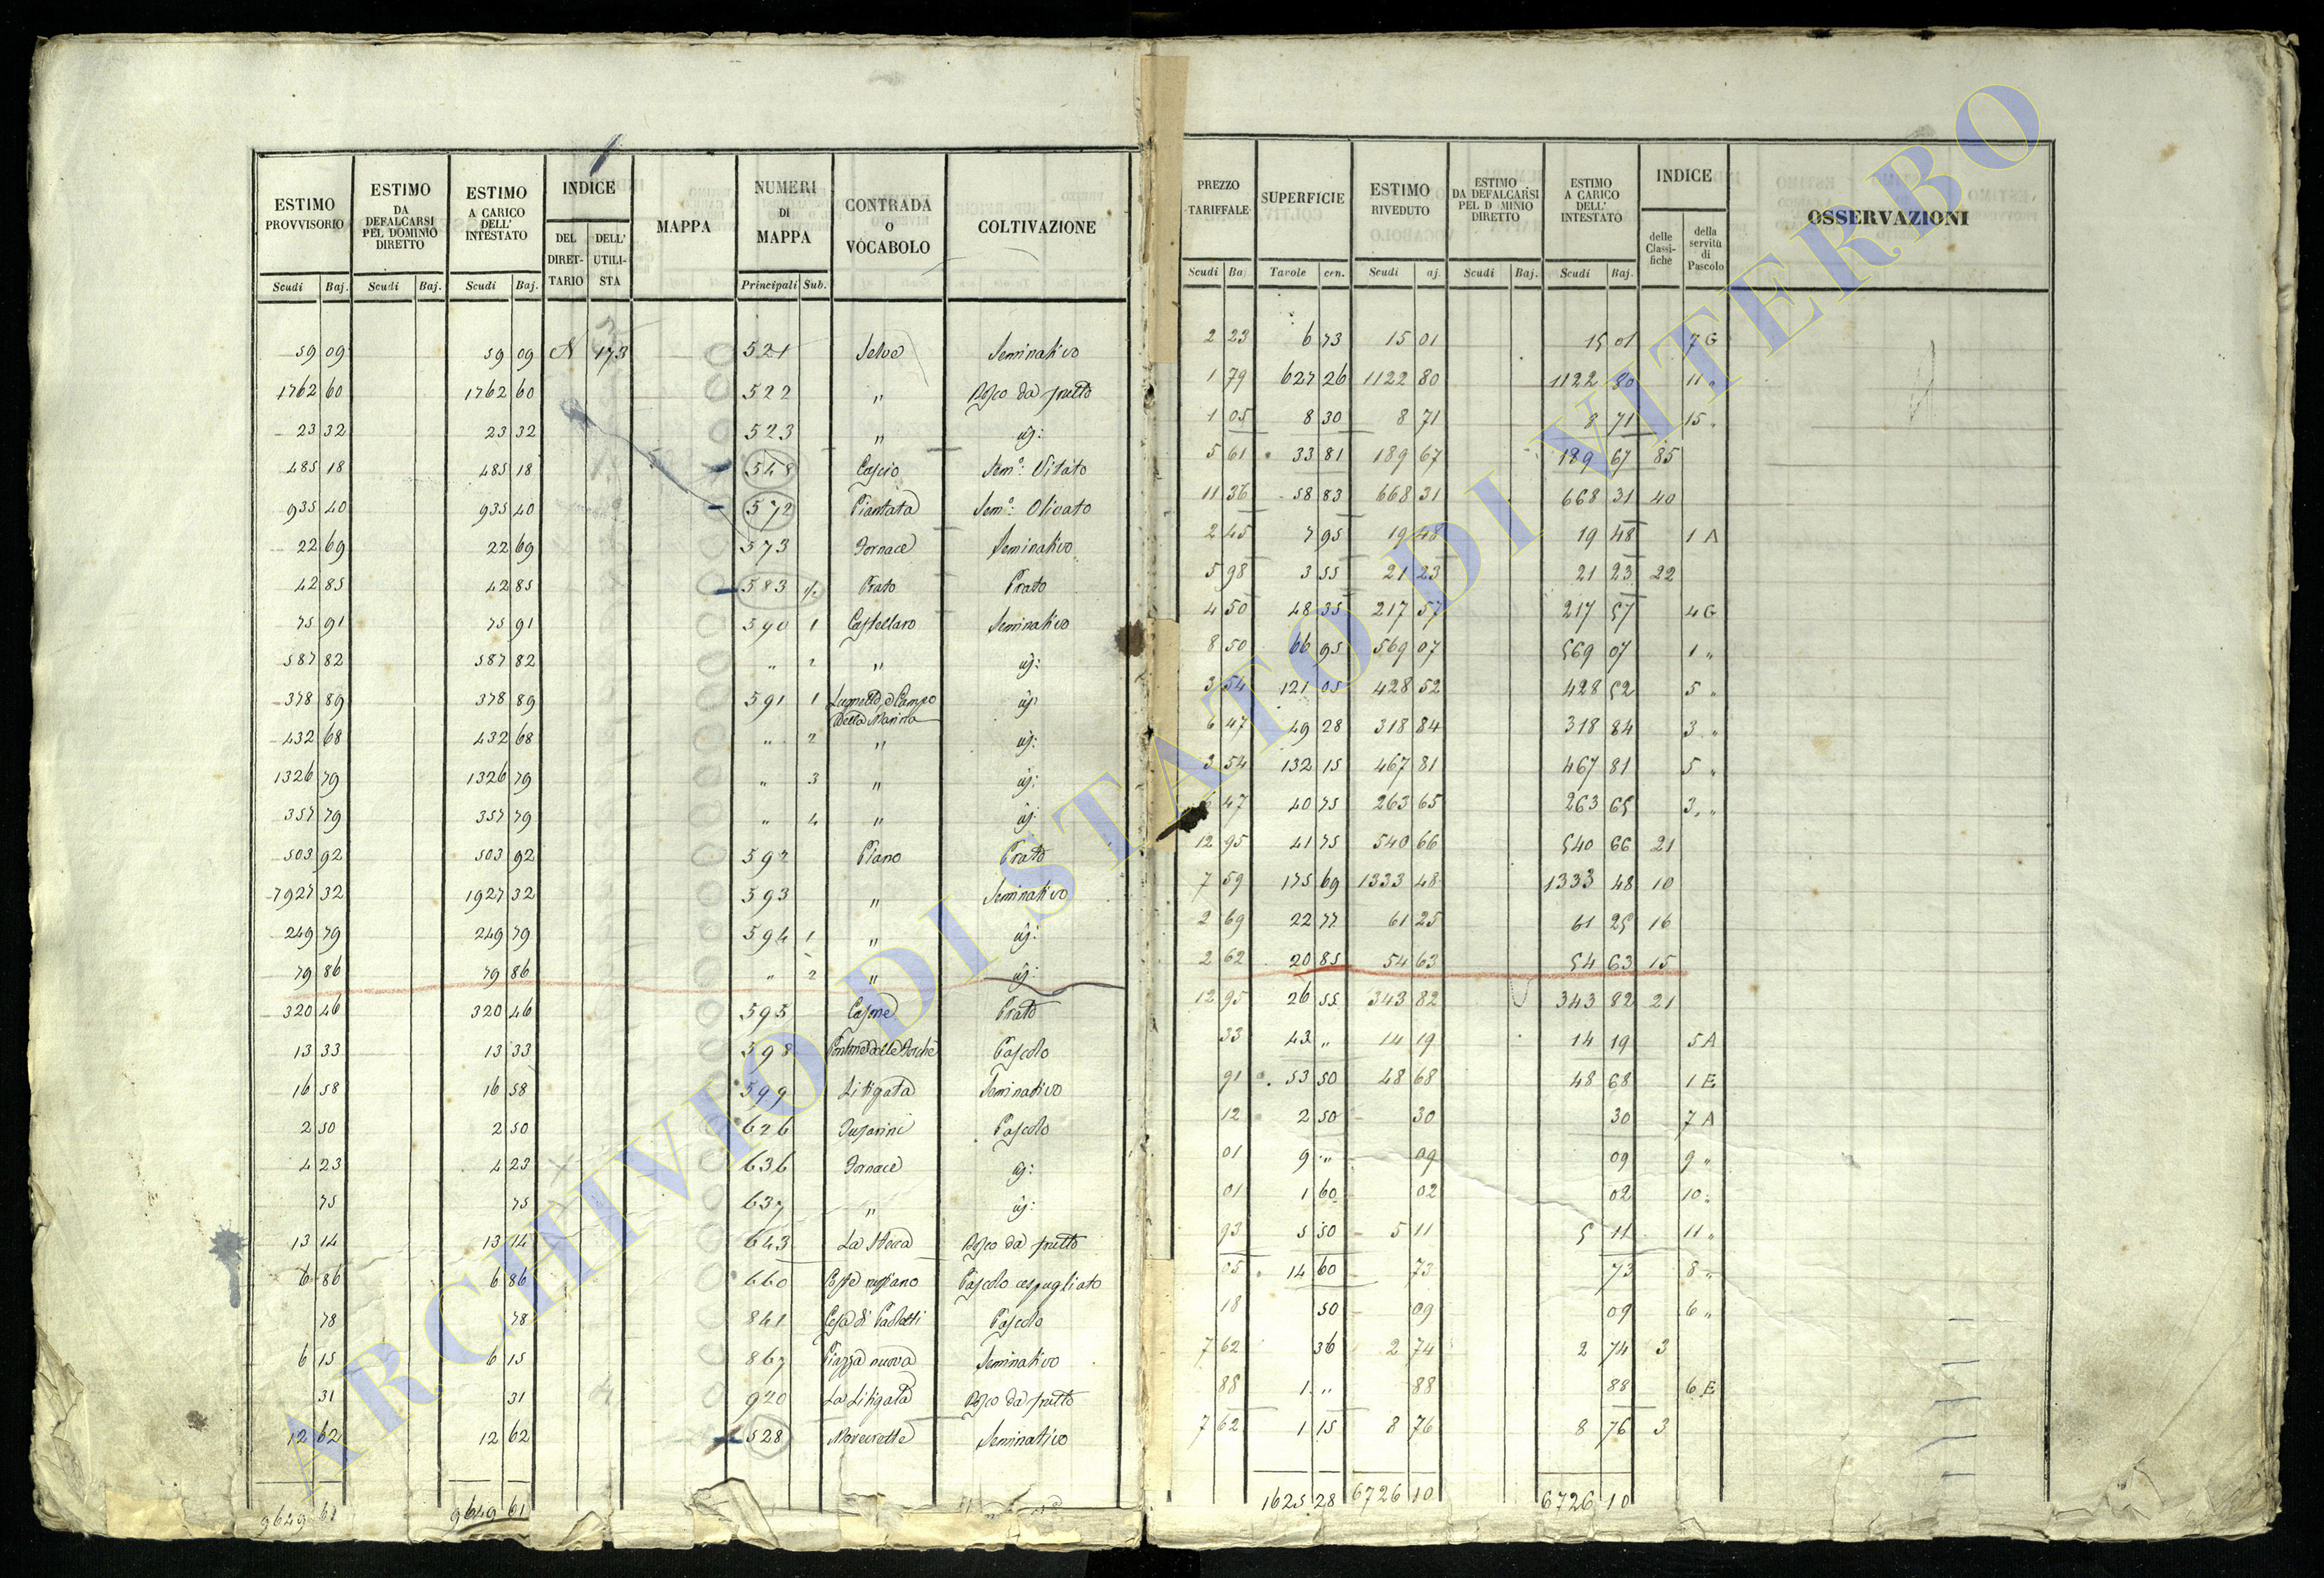 ESTIMO PROVVISORIO | ESTIMO DA DEFALCARSI PEL DOMINIO DIRETTO | ESTIMO A CARICO DELL' INTESTATO | INDICE | MAPPA | NUMERI DI MAPPA | CONTRADA o VOCABOLO | COLTIVAZIONE | PREZZO TARIFFALE | SUPERFICIE | ESTIMO RIVEDUTO | ESTIMO DA DEFALCARSI PEL D MINIO DIRETTO | ESTIMO A CARICO DELL' INTESTATO | INDICE | OSSERVAZIONI
DEL DIRET-TARIO | DELL' UTILI-STA | delle Classi-fiche | della servitù di Pascolo
Scudi | Baj. | Scudi | Baj. | Scudi | Baj. | Principali | Sub. | Scudi | Ba | Tavole | cen. | Scudi | aj. | Scudi | Baj. | Scudi | Baj.
59 09 | 59 09 | N | 173 | 521 | Selve | Seminativo | 2 23 | 6 73 | 15 01 | 15 01 | 7 G
1762 60 | 1762 60 | 522 | " | Bosco da frutto | 1 79 | 627 26 | 1122 80 | 1122 80 | 11 "
23 32 | 23 32 | 523 | " | id: | 1 05 | 8 30 | 8 71 | 8 71 | 15 "
485 18 | 485 18 | 548 | Cascio | Sem°: Vitato | 5 61 | 33 81 | 189 67 | 189 67 | 85
935 40 | 935 40 | 572 | Piantata | Sem°: Olivato | 11 36 | 58 83 | 668 31 | 668 31 | 40
22 69 | 22 69 | 573 | Fornace | Seminativo | 2 45 | 7 95 | 19 48 | 19 48 | 1 A
42 85 | 42 85 | 583 | Prato | Prato | 5 98 | 3 55 | 21 23 | 21 23 | 22
75 91 | 75 91 | 590 | 1 | Castellaro | Seminativo | 4 50 | 48 35 | 217 57 | 217 57 | 4 G
587 82 | 587 82 | " | 2 | " | id: | 8 50 | 66 95 | 569 07 | 569 07 | 1 "
378 89 | 378 89 | 591 | 1 | Campo della Marina | id: | 3 54 | 121 05 | 428 52 | 428 52 | 5 "
432 68 | 432 68 | " | 2 | " | id: | 6 47 | 49 28 | 318 84 | 318 84 | 3 "
1326 79 | 1326 79 | " | 3 | " | id: | 3 54 | 132 15 | 467 81 | 467 81 | 5 "
357 79 | 357 79 | " | 4 | " | id: | 6 47 | 40 75 | 263 65 | 263 65 | 3 "
503 92 | 503 92 | 592 | Piano | Prato | 12 95 | 41 75 | 540 66 | 540 66 | 21
1927 32 | 1927 32 | 593 | " | Seminativo | 7 59 | 175 69 | 1333 48 | 1333 48 | 10
249 79 | 249 79 | 594 | 1 | " | id: | 2 69 | 22 77 | 61 25 | 61 25 | 16
79 86 | 79 86 | " | 2 | " | id: | 2 62 | 20 85 | 54 63 | 54 63 | 15
320 46 | 320 46 | 595 | Casone | Prato | 12 95 | 26 55 | 343 82 | 343 82 | 21
13 33 | 13 33 | 598 | Pascolo | 33 | 43 " | 14 19 | 14 19 | 5 A
16 58 | 16 58 | 599 | Litigata | Seminativo | 91 | 53 50 | 48 68 | 48 68 | 1 E
2 50 | 2 50 | 626 | Pascolo | 12 | 2 50 | 30 | 30 | 7 A
4 23 | 4 23 | 636 | Fornace | id: | 01 | 9 " | 09 | 09 | 9 "
75 | 75 | 637 | " | id: | 01 | 1 60 | 02 | 02 | 10 "
13 14 | 13 14 | 643 | La | Bosco da frutto | 93 | 5 50 | 5 11 | 5 11 | 11 "
6 86 | 6 86 | 660 | Pascolo cespugliato | 05 | 14 60 | 73 | 73 | 8 "
78 | 78 | 841 | Pascolo | 18 | 50 | 09 | 09 | 6 "
6 15 | 6 15 | 867 | Piazza nuova | Seminativo | 7 62 | 36 | 2 74 | 2 74 | 3
31 | 31 | 920 | La Litigata | Bosco da frutto | 88 | 1 " | 88 | 88 | 6 E
12 62 | 12 62 | 528 | Seminativo | 7 62 | 1 15 | 8 76 | 8 76 | 3
9649 61 | 9649 61 | 1625 28 | 6726 10 | 6726 10
ARCHIVIO DI STATO DI VITERBO